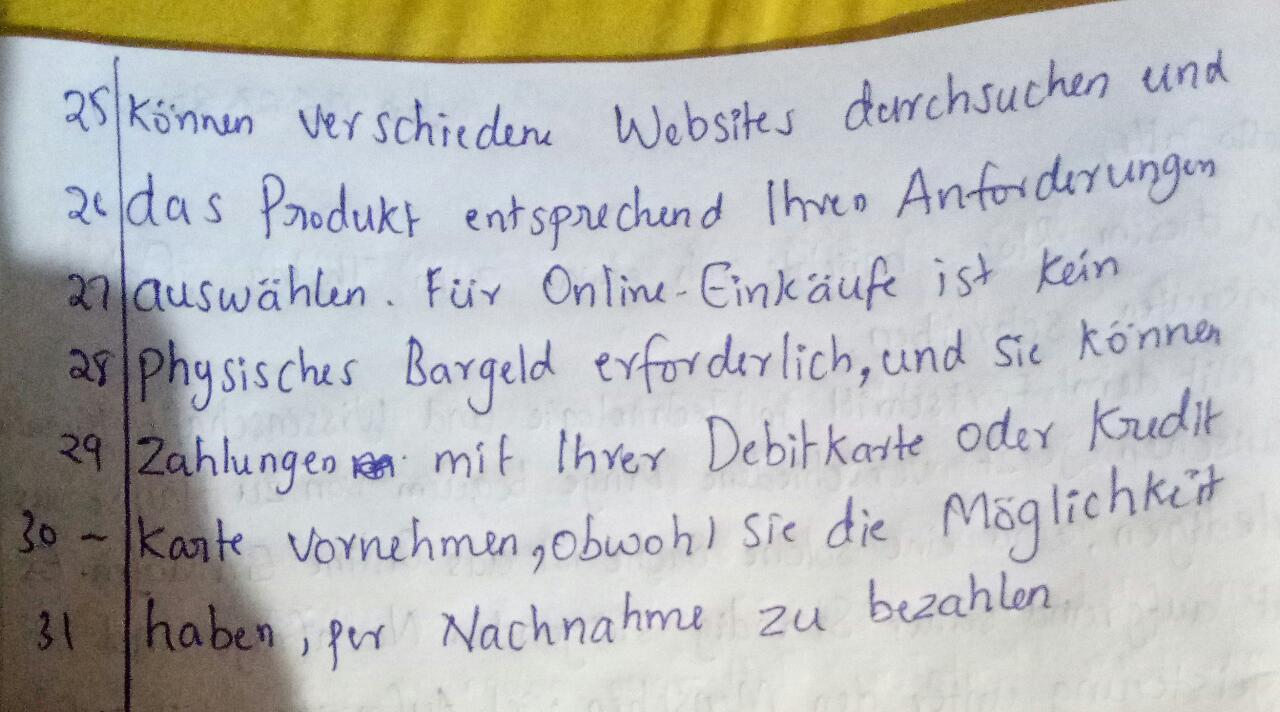 25 können verschiedene Websites durchsuchen und
26 das Produkt entsprechend Ihren Anforderungen
27 auswählen. Für Online-Einkäufe ist kein
28 physisches Bargeld erforderlich, und sie können
29 Zahlungen mit Ihrer Debitkarte oder Kredit
30 - karte vornehmen, obwohl sie die Möglichkeit
31 haben, per Nachnahme zu bezahlen.